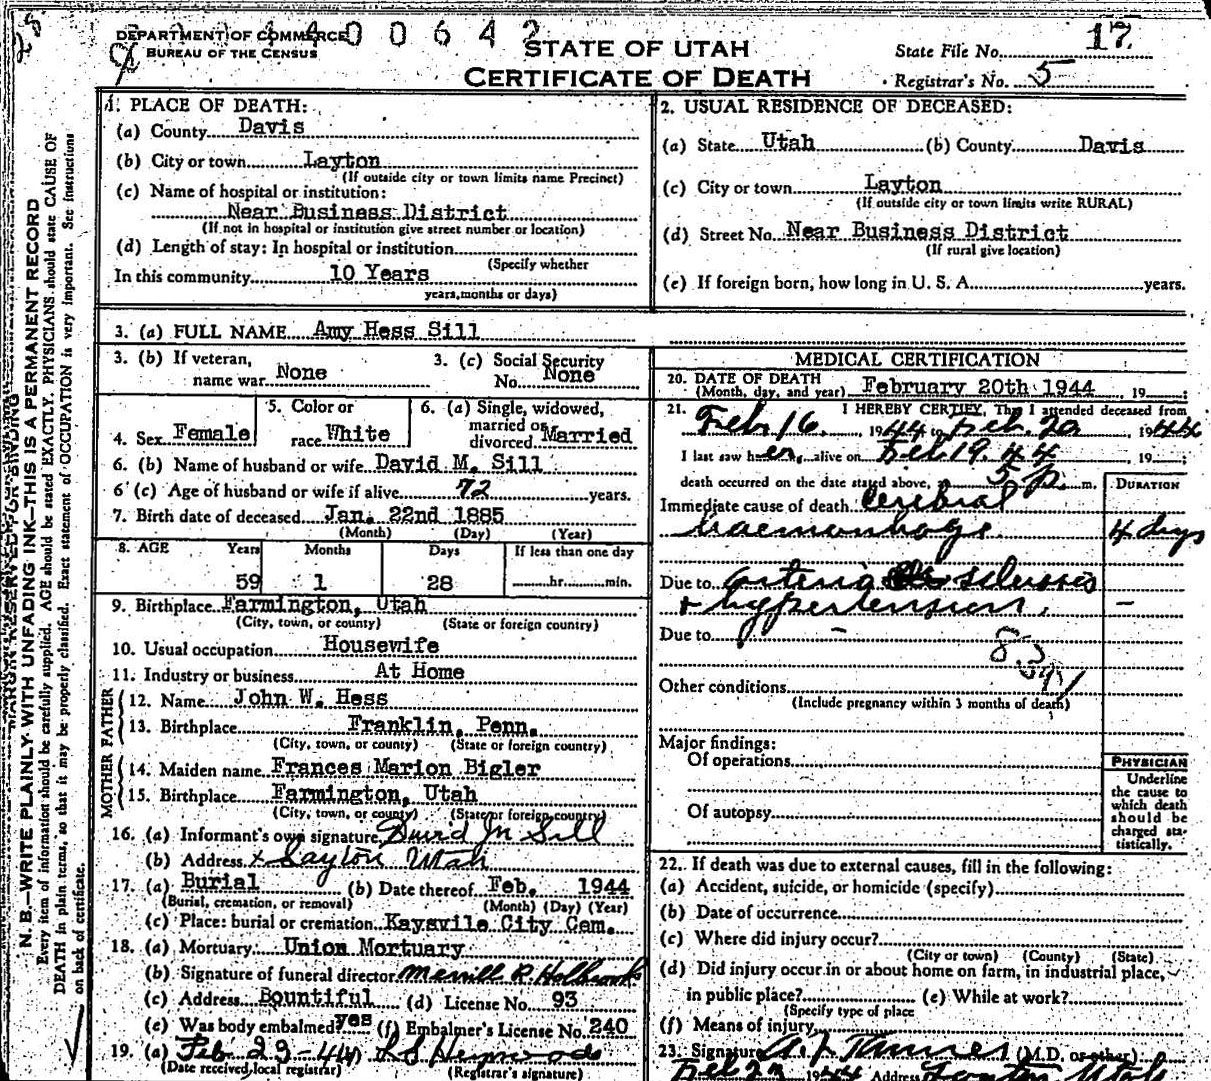 DEPARTMENT OF COMMERCE
BUREAU OF THE CENSUS
4400642
STATE OF UTAH
CERTIFICATE OF DEATH
State File No. 17
Registrar's No. 5
N. B.—WRITE PLAINLY WITH UNFADING INK—THIS IS A PERMANENT RECORD
Every item of information should be carefully supplied. AGE should be stated EXACTLY. PHYSICIANS should state CAUSE OF
DEATH in plain terms, so that it may be properly classified. Exact statement of OCCUPATION is very important. See instructions
on back of certificate.
1. PLACE OF DEATH:
(a) County Davis
(b) City or town Layton
(If outside city or town limits name Precinct)
(c) Name of hospital or institution:
Near Business District
(If not in hospital or institution give street number or location)
(d) Length of stay: In hospital or institution
(Specify whether
In this community 10 Years
years, months or days)
2. USUAL RESIDENCE OF DECEASED:
(a) State Utah (b) County Davis
(c) City or town Layton
(If outside city or town limits write RURAL)
(d) Street No. Near Business District
(If rural give location)
(e) If foreign born, how long in U. S. A. years.
3. (a) FULL NAME Amy Hess Sill
3. (b) If veteran, name war None
3. (c) Social Security No. None
4. Sex Female
5. Color or race White
6. (a) Single, widowed, married or divorced Married
6. (b) Name of husband or wife David M. Sill
6 (c) Age of husband or wife if alive 72 years.
7. Birth date of deceased Jan. 22nd 1885
(Month) (Day) (Year)
8. AGE Years Months Days If less than one day
59 1 28 hr. min.
9. Birthplace Farmington, Utah
(City, town, or county) (State or foreign country)
10. Usual occupation Housewife
11. Industry or business At Home
FATHER
12. Name John W. Hess
13. Birthplace Franklin, Penn.
(City, town, or county) (State or foreign country)
MOTHER
14. Maiden name Frances Marion Bigler
15. Birthplace Farmington, Utah
(City, town, or county) (State or foreign country)
16. (a) Informant's own signature David M Sill
(b) Address x Layton Utah
17. (a) Burial (b) Date thereof Feb. 1944
(Burial, cremation, or removal) (Month) (Day) (Year)
(c) Place: burial or cremation Kaysvile City Cem.
18. (a) Mortuary Union Mortuary
(b) Signature of funeral director Merrill R. Holbrook
(c) Address Bountiful (d) License No. 93
(e) Was body embalmed? yes (f) Embalmer's License No. 240
19. (a) Feb 23-44
(Date received local registrar) (Registrar's signature)
MEDICAL CERTIFICATION
20. DATE OF DEATH
(Month, day, and year) February 20th 1944, 19
21. I HEREBY CERTIFY, That I attended deceased from
Feb. 16, 1944 to Feb. 20 1944
I last saw her alive on Feb 19. 44, 19 ;
death occurred on the date stated above, 5 p. m.
DURATION
Immediate cause of death Cerebral
haemorrhage 4 days
Due to arterio sclerosis
+ hypertension. –
Due to –
83
Other conditions
(Include pregnancy within 3 months of death)
Major findings:
Of operations
Of autopsy
PHYSICIAN
Underline
the cause to
which death
should be
charged sta-
tistically.
22. If death was due to external causes, fill in the following:
(a) Accident, suicide, or homicide (specify)
(b) Date of occurrence
(c) Where did injury occur?
(City or town) (County) (State)
(d) Did injury occur in or about home on farm, in industrial place,
in public place? (e) While at work?
(Specify type of place
(f) Means of injury
23. Signature (M.D. or other)
Feb 23 1944 Address Layton Utah